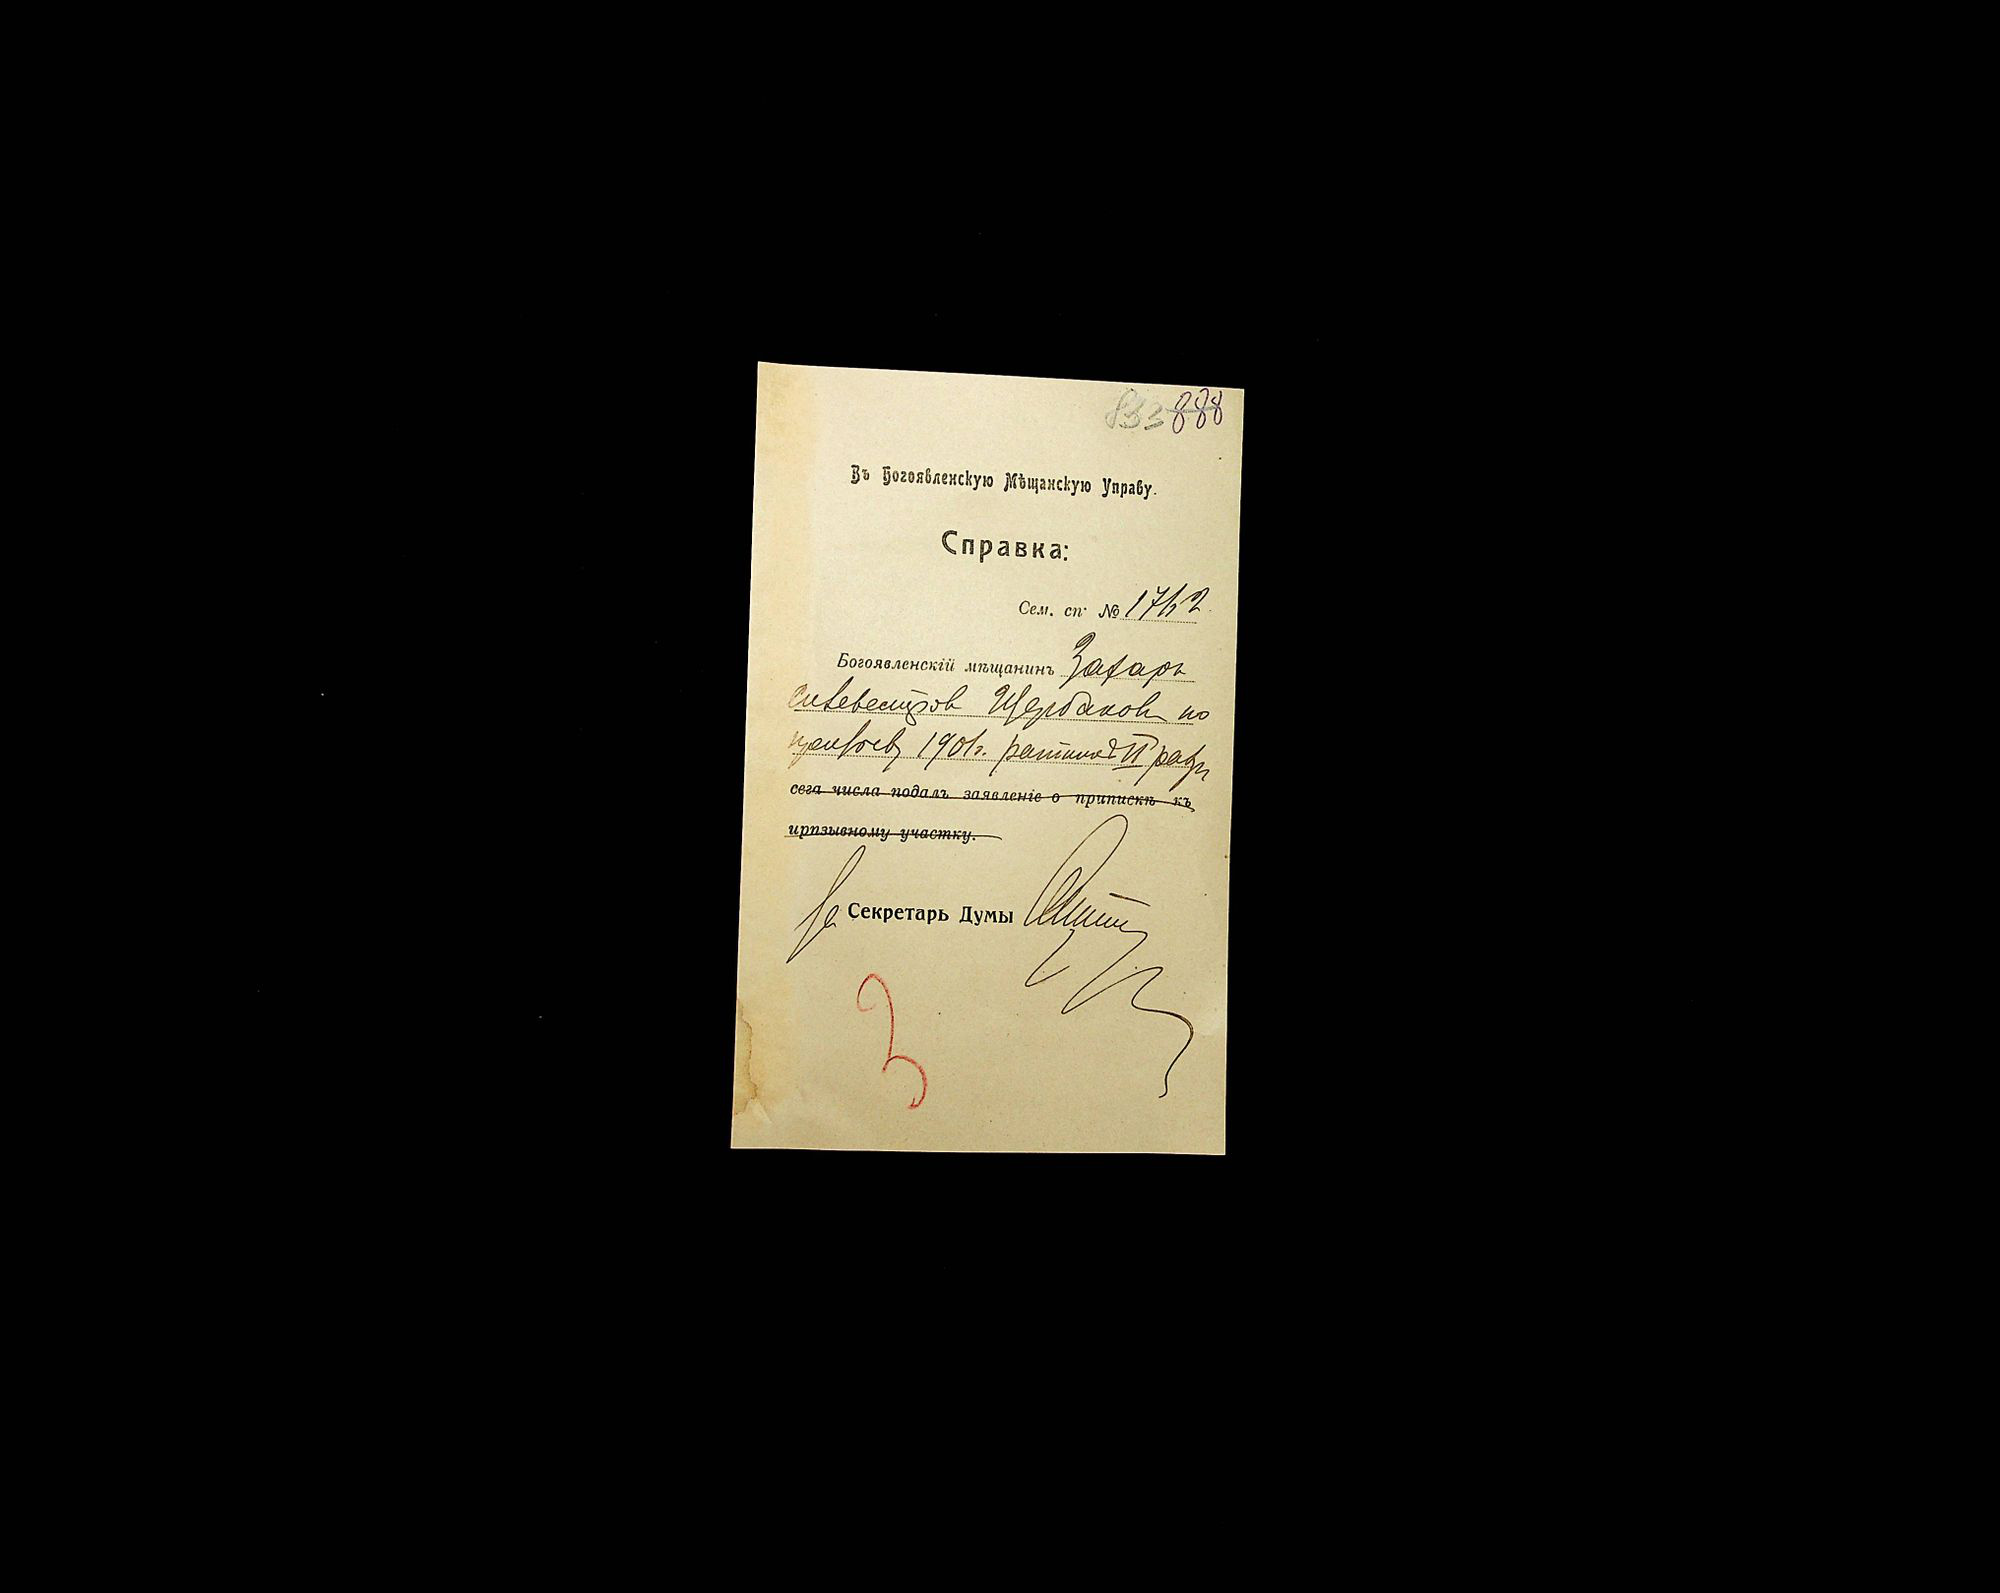 833 888
Въ Богоявленскую Мѣщанскую Управу.
Справка:
Сем. сп. № 1762
Богоявленскій мѣщанинъ Захаръ
Силевестров Щербаковъ по
призыву 1901г. ратник II разр
сега числа подалъ заявленіе о припискѣ къ
ирпзывному участку.
За Секретарь Думы
3